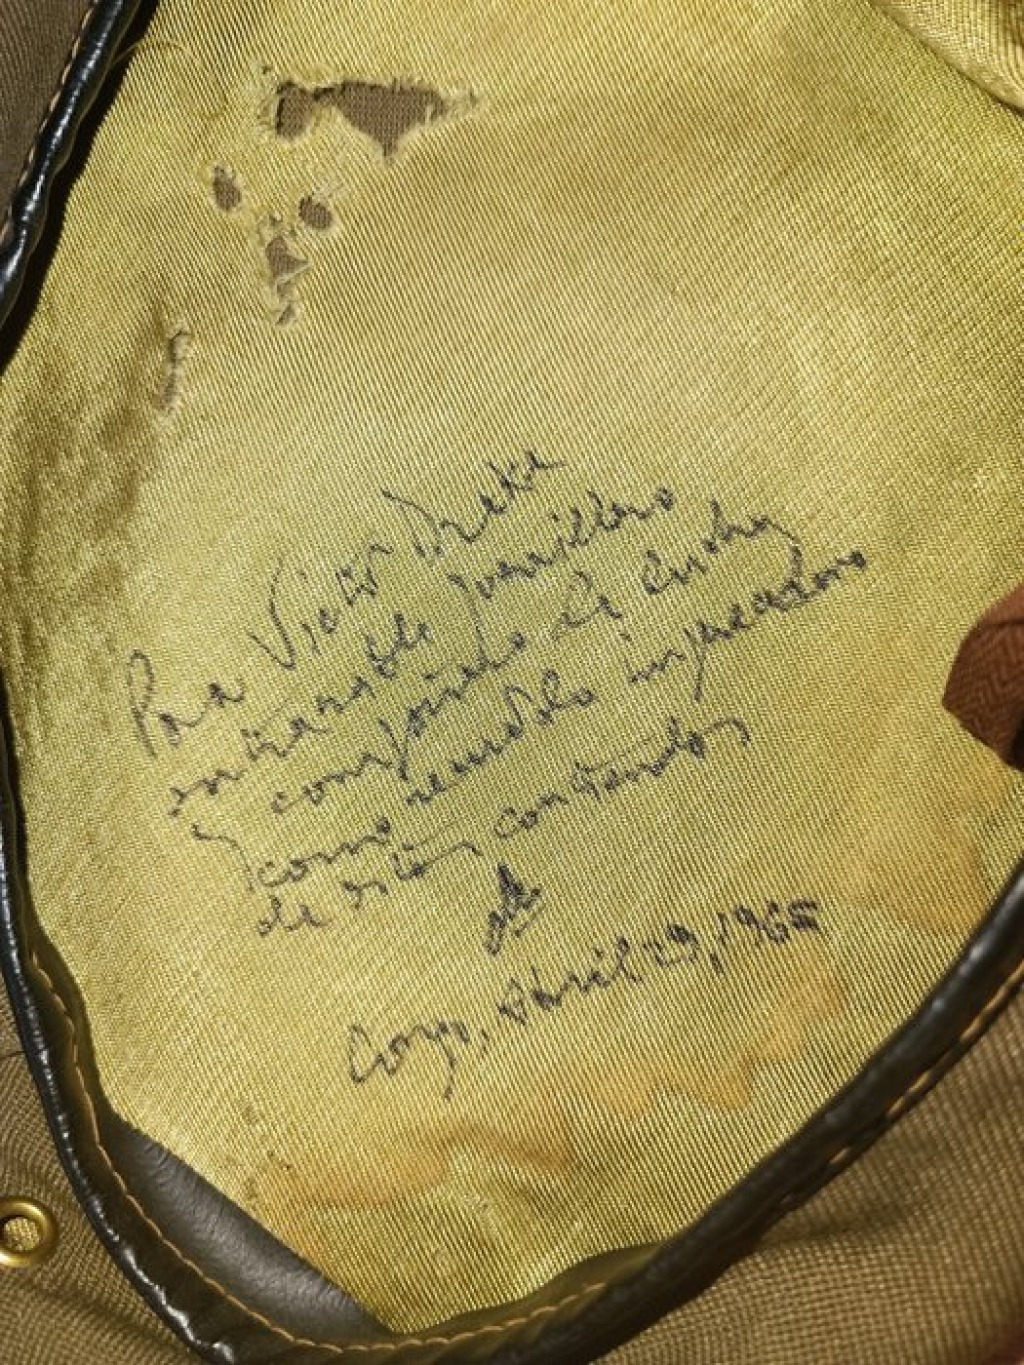 Para Victor Dreke
entrañable guerrillero
y compañero de lucha
como recuerdo imperecedero
de estas contiendas
Che
Congo, Abril 29, 1965